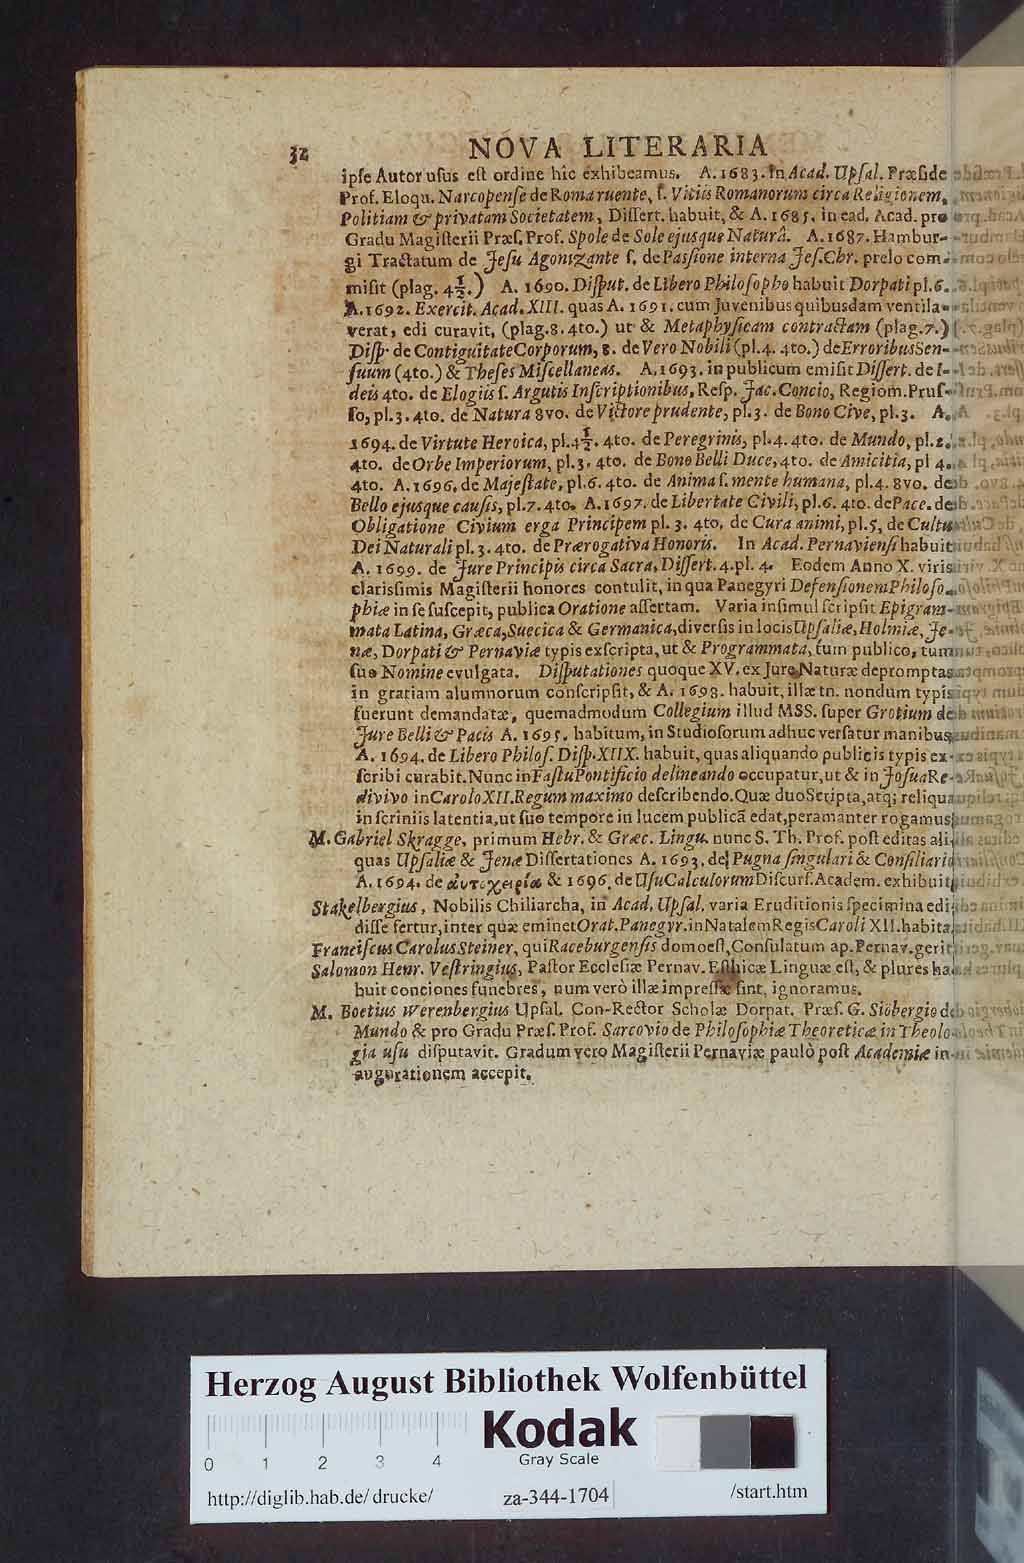 32 NOVA LITERARIA
ipſe Autor uſus eſt ordine hîc exhibeamus. A. 1683. In Acad. Upſal. Præſide
Prof. Eloqu. Narcopenſe de Roma ruente, ſ. Vitiis Romanorum circa Religionem,
Politiam & privatam Societatem, Diſſert. habuit, & A. 1685. in ead. Acad. pro
Gradu Magiſterii Præſ. Prof. Spole de Sole ejusque Naturâ. A. 1687. Hambur-
gi Tractatum de Jeſu Agonizante ſ. de Paſſione interna Jeſ. Chr. prelo com-
miſit (plag. 4½.) A. 1690. Diſput. de Libero Philoſopho habuit Dorpati pl. 6.
A. 1692. Exercit. Acad. XIII. quas A. 1691. cum Juvenibus quibusdam ventila-
verat, edi curavit, (plag. 8. 4to.) ut & Metaphyſicam contractam (plag. 7.)
Diſp. de Contiguitate Corporum, 8. de Vero Nobili (pl. 4. 4to.) de Erroribus Sen-
ſuum (4to.) & Theſes Miſcellaneas. A. 1693. in publicum emiſit Diſſert. de I-
deis 4to. de Elogiis ſ. Argutis Inſcriptionibus, Reſp. Jac. Concio, Regiom. Pruſ-
ſo, pl. 3. 4to. de Natura 8vo. de Victore prudente, pl. 3. de Bono Cive, pl. 3. A.
1694. de Virtute Heroica, pl. 4½. 4to. de Peregrinis, pl. 4. 4to. de Mundo, pl. 2.
4to. de Orbe Imperiorum, pl. 3. 4to. de Bono Belli Duce, 4to. de Amicitia, pl 4.
4to. A. 1696. de Majeſtate, pl. 6. 4to. de Anima ſ. mente humana, pl. 4. 8vo. de
Bello ejusque cauſis, pl. 7. 4to. A. 1697. de Libertate Civili, pl. 6. 4to. de Pace. de
Obligatione Civium erga Principem pl. 3. 4to. de Cura animi, pl. 5, de Cultu
Dei Naturali pl. 3. 4to. de Prærogativa Honoris. In Acad. Pernavienſi habuit
A. 1699. de Jure Principis circa Sacra, Diſſert. 4. pl. 4. Eodem Anno X. viris
clariſſimis Magiſterii honores contulit, in qua Panegyri Defenſionem Philoſo-
phiæ in ſe ſuſcepit, publica Oratione aſſertam. Varia inſimul ſcripſit Epigram-
mata Latina, Græca, Suecica & Germanica, diverſis in locis Upſaliæ, Holmiæ, Je-
næ, Dorpati & Pernaviæ typis exſcripta, ut & Programmata, tum publico, tum
ſuo Nomine evulgata. Diſputationes quoque XV. ex Jure Naturæ depromptas
in gratiam alumnorum conſcripſit, & A. 1698. habuit, illæ tn. nondum typis
fuerunt demandatæ, quemadmodum Collegium illud MSS. ſuper Grotium de
Jure Belli & Pacis A. 1695. habitum, in Studioſorum adhuc verſatur manibus,
A. 1694. de Libero Philoſ. Diſp. XIIX. habuit, quas aliquando publicis typis ex-
ſcribi curabit. Nunc in Faſtu Pontificio delineando occupatur, ut & in Joſua Re-
divivo in Carolo XII. Regum maximo deſcribendo. Quæ duo Scripta, atq; reliqua
in ſcriniis latentia, ut ſuo tempore in lucem publicâ edat, peramanter rogamus
M. Gabriel Skragge, primum Hebr. & Græc. Lingu. nunc S. Th. Prof. poſt editas ali-
quas Upſaliæ & Jenæ Diſſertationes A. 1693. de Pugna ſingulari & Conſiliario
A. 1694. de αυτοχειρία & 1696. de Uſu Calculorum Diſcurſ. Academ. exhibuit
Stakelbergius, Nobilis Chiliarcha, in Acad. Upſal. varia Eruditionis ſpecimina edi-
diſſe fertur, inter quæ eminet Orat. Panegyr. in Natalem Regis Caroli XII. habita
Franciſcus Carolus Steiner, qui Raceburgenſis domo eſt, Conſulatum ap. Pernav. gerit
Salomon Henr. Veſtringius, Paſtor Eccleſiæ Pernav. Eſthicæ Linguæ eſt, & plures ha-
buit conciones funebres, num verò illæ impreſſæ ſint, ignoramus.
M. Boetius Werenbergius Upſal. Con-Rector Scholæ Dorpat. Præſ. G. Siöbergio de
Mundo & pro Gradu Præſ. Prof. Sarcovio de Philoſophiæ Theoreticæ in Theolo-
gia uſu diſputavit. Gradum vero Magiſterii Pernaviæ paulò poſt Academiæ in-
augurationem accepit.
Herzog August Bibliothek Wolfenbüttel
Kodak
0 1 2 3 4 Gray Scale
http://diglib.hab.de/drucke/ za-344-1704 /start.htm